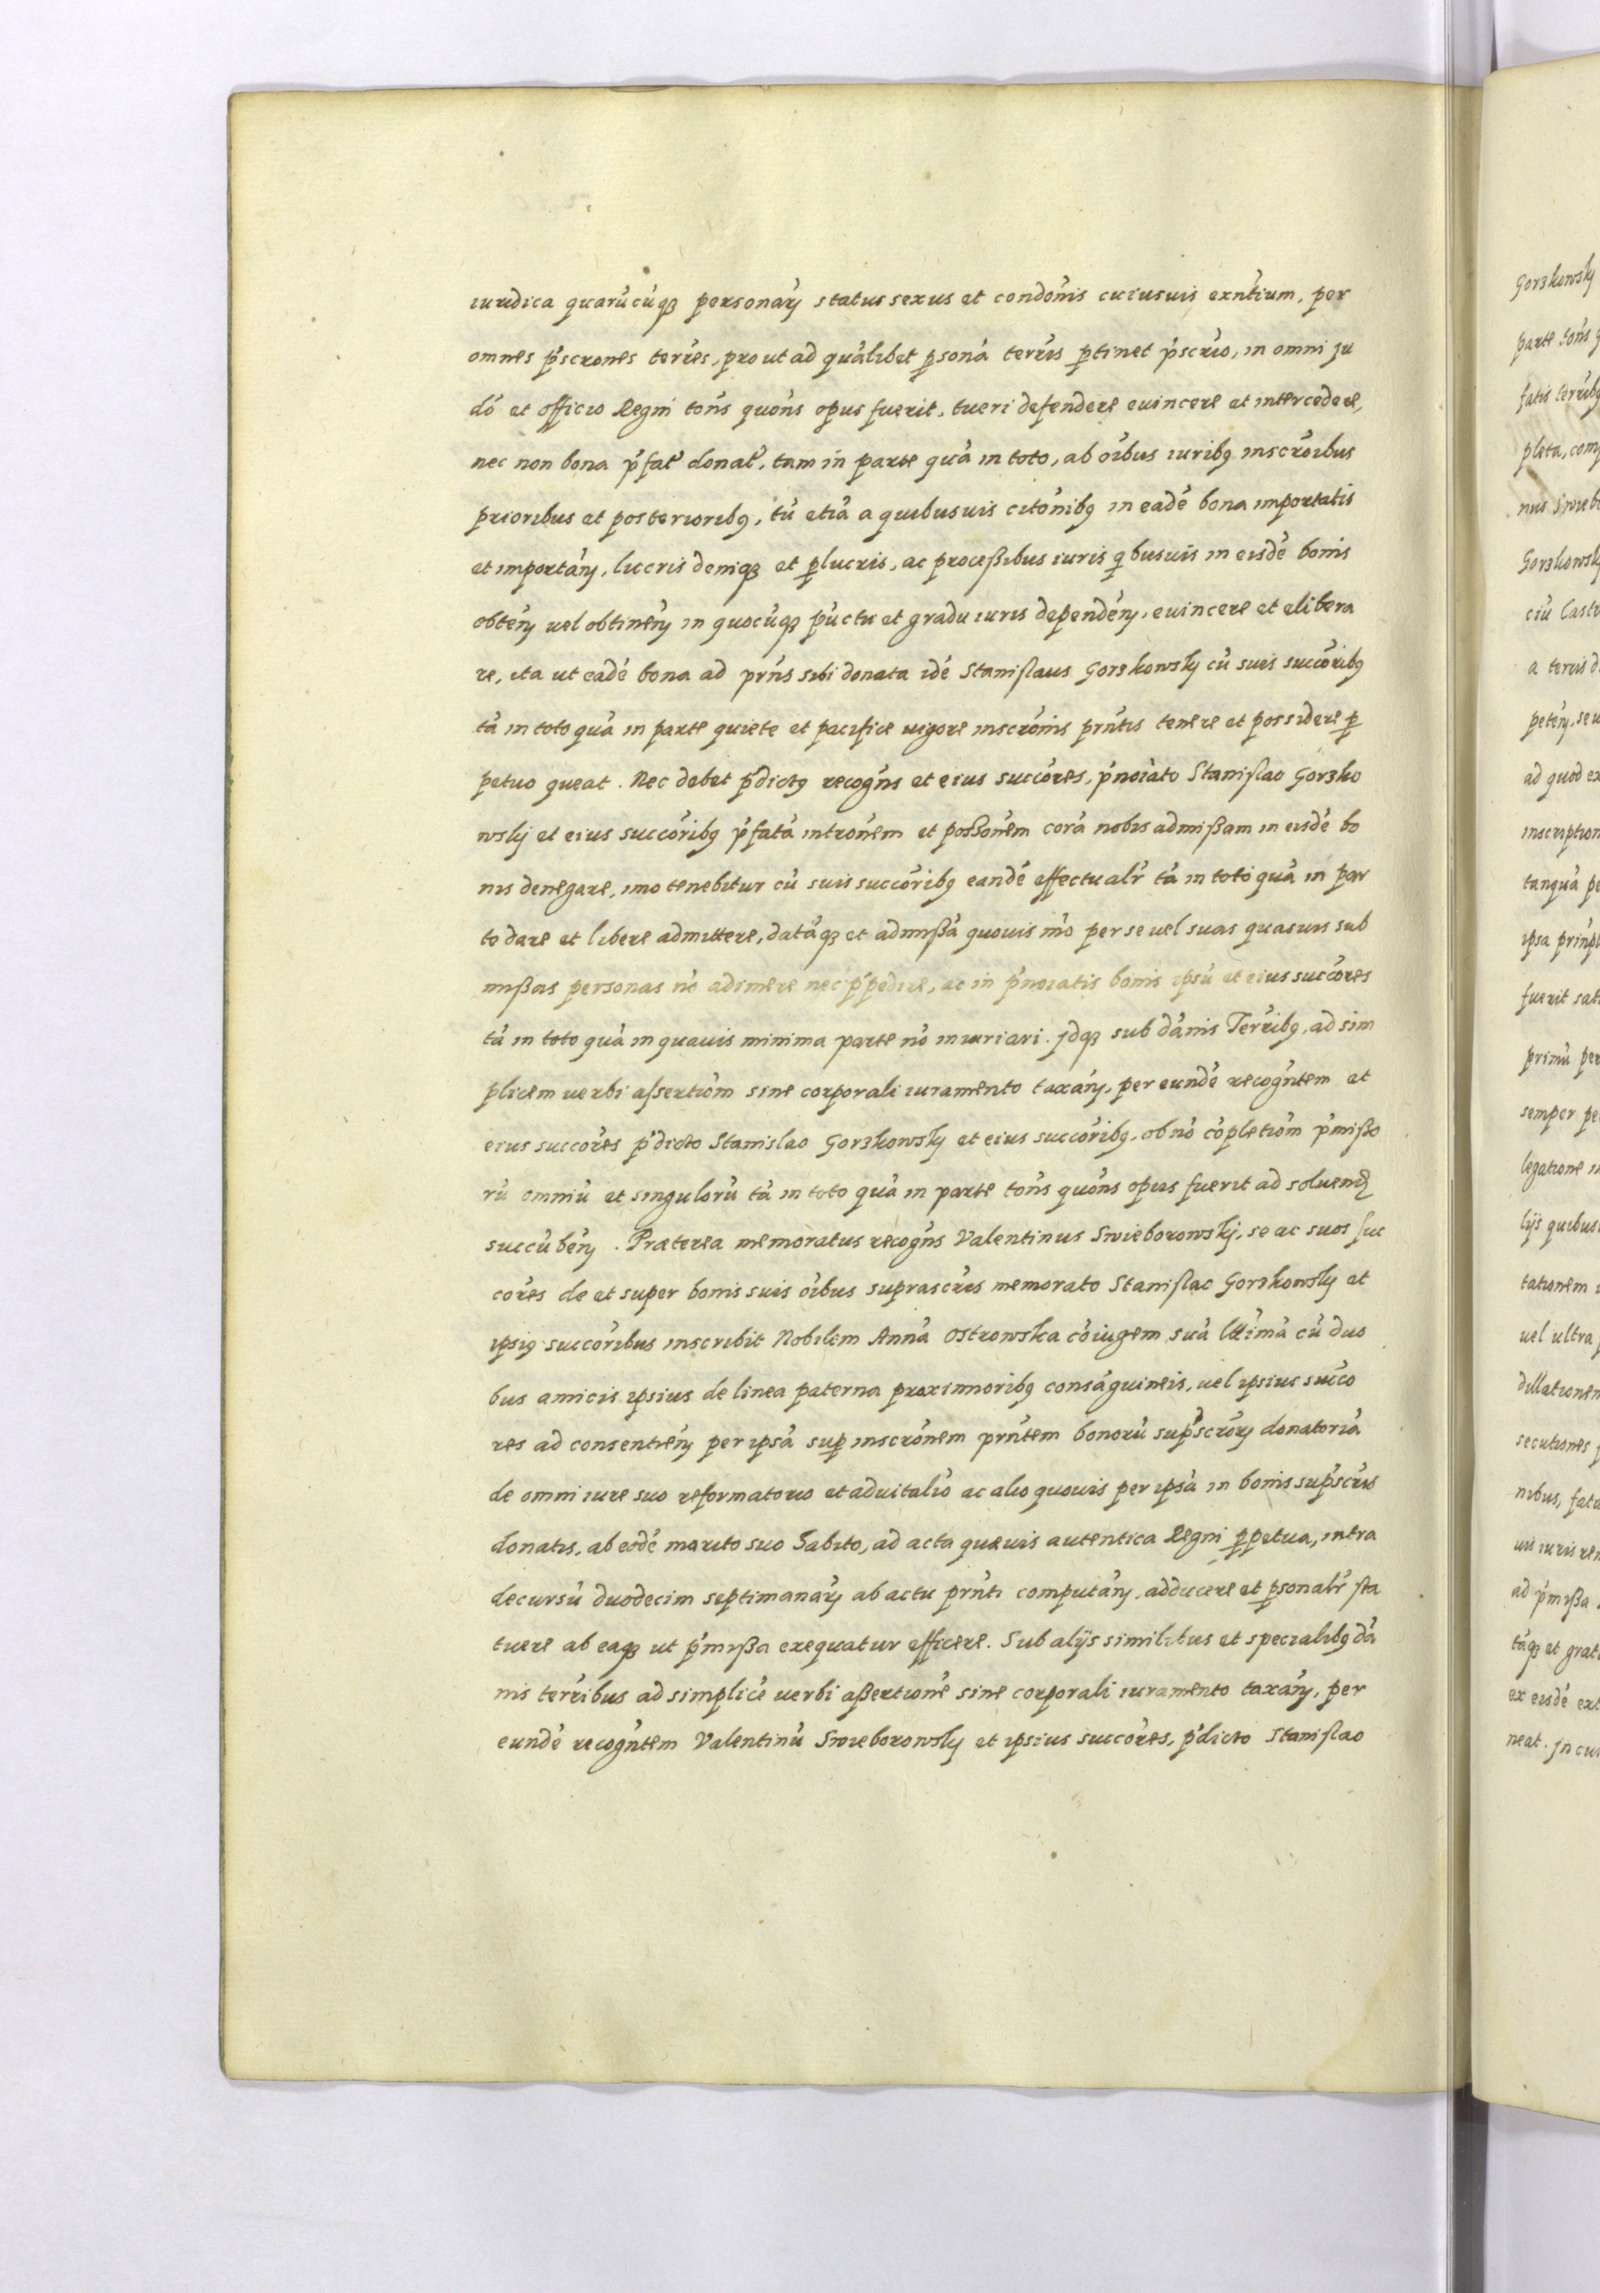 iuridica quarúcúqꝫ personarꝝ status sexus et condónis cuiusuis exńtium, per
omnes pscrones terres, prout ad quálibet ꝑsoná terris ꝑtinet pscrio, in omni ju
dó et officio Regni tońs quońs opus fuerit, tueri defendere euincere et intercedere,
nec non bona pfat donat, tam in parte quá in toto, ab oibus iuribꝰ inscroibus
prioribus et posterioribꝰ, tú etiá a quibusuis citónibꝰ in eadé bona importatis
et importáꝝ, lucris deniqꝫ et ꝑlucris, ac proceßibus iuris qbusuis in eisdé bonis
obteńꝝ uel obtineńꝝ in quocúqꝫ púctu et gradu iuris dependéꝝ, euincere et elibera
re, ita ut eadé bona ad prńs sibi donata idé Stanislaus Gorzkowsky cú suis succoribꝰ
tá in toto quá in parte quiete et pacifice uigore inscronis prńtis tenere et possidere ꝑ
petuo queat. Nec debet pdictꝰ recogńs et eius succores, pnoiato Stanislao Gorzko
wskij et eius succoribꝰ pfatá intronem et possonem corá nobis admißam in eisdé bo
nis denegare, imo tenebitur cú suis succoribꝰ eandé effectualr tá in toto quá in par
to dare et libere admittere, datáqꝫ et admißá quouis mo per se uel suas quasuis sub
mißas personas nó adimere nec ppedire, ac in pnoiatis bonis ipsú et eius succores
tá in toto quá in quauis minima parte nó iniuriari. jdqꝫ sub dánis Terribꝰ, ad sim
plicem uerbi assertiom sine corporali iuramento taxáꝝ, per eundé recogńtem et
eius succores pdicto Stanislao Gorzkowsky et eius succoribꝰ, ob nó cópletiom pmißo
rú omniú et singulorú tá in toto quá in parte tońs quońs opus fuerit ad soluenꝝ
succúbéꝝ. Præterea memoratus recogńs Valentinus Swieborowskj, se ac suos suc
cores de et super bonis suis oibus suprascris memorato Stanislao Gorzkowsky et
ipsiꝰ succoribus inscribit Nobilem Anná Ostrowska cóiugem suá lttimá cú duo
bus amicis ipsius de linea paterna proximioribꝰ conságuineis, uel ipsius succo
res ad consentieńꝝ per ipsá suꝑ inscronem prńtem bonorú supscrorꝝ donatoriá
de omni iure suo reformatorio et aduitalió ac alio quouis per ipsá in bonis supscris
donatis, ab eodé marito suo habito, ad acta quæuis autentica Regni ꝑpetua, intra
decursú duodecim septimanarꝝ ab actu prńti computáꝝ, adducere et ꝑsonalr sta
tuere ab eaqꝫ ut pmißa exequatur efficere. Sub alijs similibus et specialibꝰ dá
nis terribus ad simplicé uerbi aßertioné sine corporali iuramento taxáꝝ, per
eundé recogńtem Valentinú Swieborowsky et ipsius succores, pdicto Stanislao
Gorzkowsky
parte tońs
fatis terribꝰ
pleta, com
nus Swieb
Gorzkowsky
ciú Castr
a terris d
ad quod ex
inscription
tanquá pe
fuerit sat
primú per
semper pe
legatione
lijs quibus
tationem
uel ultra
dillationem
secutiones
nibus, fata
uis iuris re
ad pmißa
táqꝫ et grat
ex eisdé ext
neat. jn cui